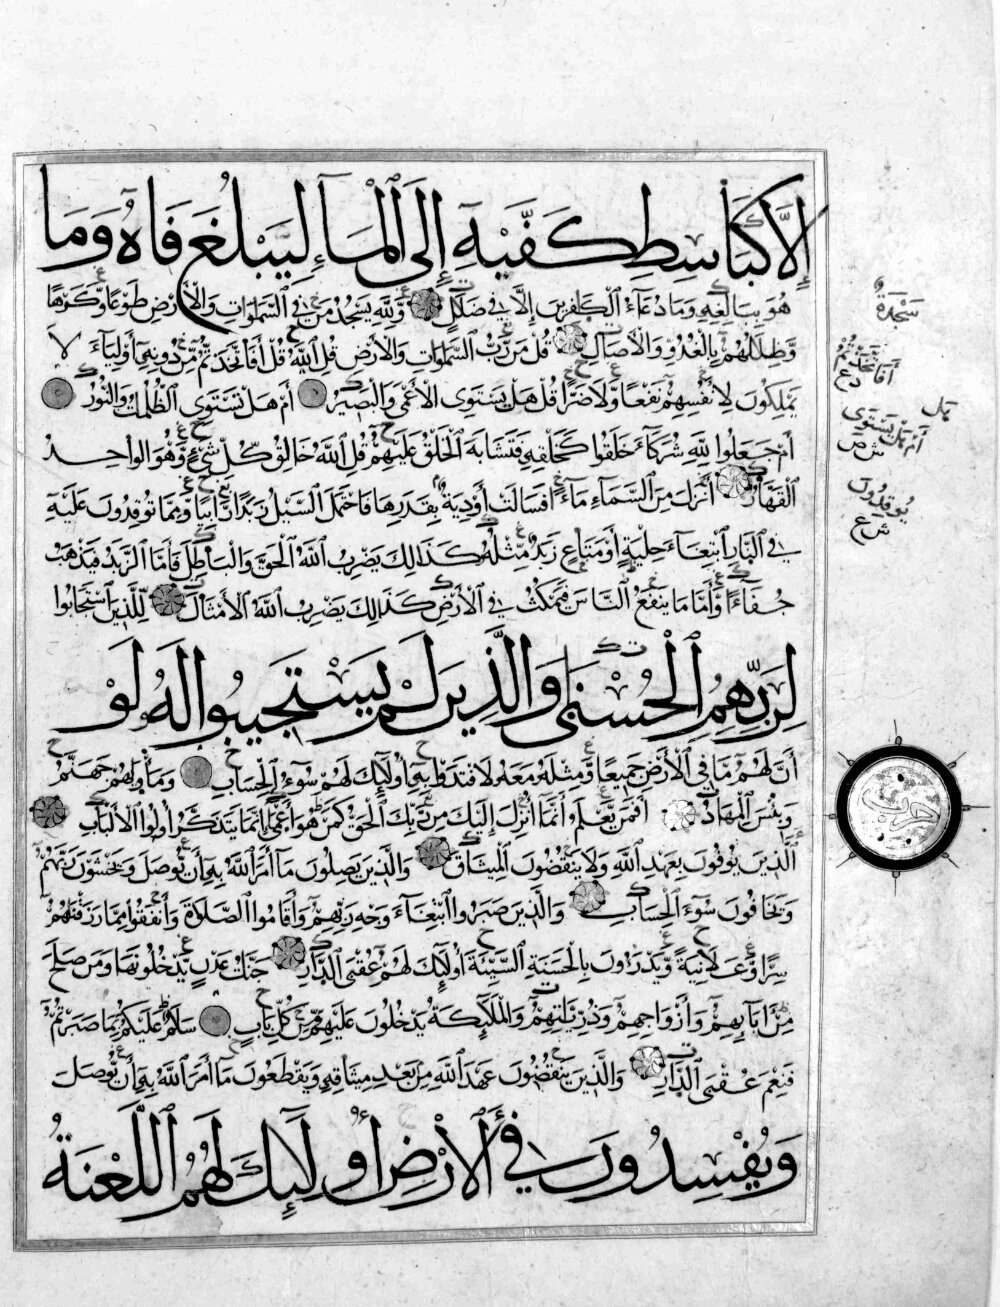 إِلَّا كَبَاسِطِ كَفَّيْهِ إِلَى الْمَاءِ لِيَبْلُغَ فَاهُ وَمَا
هُوَ بِبَالِغِهِ وَمَا دُعَاءُ الْكَافِرِينَ إِلَّا فِي ضَلَالٍ وَلِلَّهِ يَسْجُدُ مَنْ فِي السَّمَاوَاتِ وَالْأَرْضِ طَوْعًا وَكَرْهًا
وَظِلَالُهُمْ بِالْغُدُوِّ وَالْآصَالِ قُلْ مَنْ رَبُّ السَّمَاوَاتِ وَالْأَرْضِ قُلِ اللَّهُ قُلْ أَفَاتَّخَذْتُمْ مِنْ دُونِهِ أَوْلِيَاءَ لَا
يَمْلِكُونَ لِأَنْفُسِهِمْ نَفْعًا وَلَا ضَرًّا قُلْ هَلْ يَسْتَوِي الْأَعْمَى وَالْبَصِيرُ أَمْ هَلْ تَسْتَوِي الظُّلُمَاتُ وَالنُّورُ
أَمْ جَعَلُوا لِلَّهِ شُرَكَاءَ خَلَقُوا كَخَلْقِهِ فَتَشَابَهَ الْخَلْقُ عَلَيْهِمْ قُلِ اللَّهُ خَالِقُ كُلِّ شَيْءٍ وَهُوَ الْوَاحِدُ
الْقَهَّارُ أَنْزَلَ مِنَ السَّمَاءِ مَاءً فَسَالَتْ أَوْدِيَةٌ بِقَدَرِهَا فَاحْتَمَلَ السَّيْلُ زَبَدًا رَابِيًا وَمِمَّا تُوقِدُونَ عَلَيْهِ
فِي النَّارِ ابْتِغَاءَ حِلْيَةٍ أَوْ مَتَاعٍ زَبَدٌ مِثْلُهُ كَذَلِكَ يَضْرِبُ اللَّهُ الْحَقَّ وَالْبَاطِلَ فَأَمَّا الزَّبَدُ فَيَذْهَبُ
جُفَاءً وَأَمَّا مَا يَنْفَعُ النَّاسَ فَيَمْكُثُ فِي الْأَرْضِ كَذَلِكَ يَضْرِبُ اللَّهُ الْأَمْثَالَ لِلَّذِينَ اسْتَجَابُوا
لِرَبِّهِمُ الْحُسْنَى وَالَّذِينَ لَمْ يَسْتَجِيبُوا لَهُ لَوْ
أَنَّ لَهُمْ مَا فِي الْأَرْضِ جَمِيعًا وَمِثْلَهُ مَعَهُ لَافْتَدَوْا بِهِ أُولَئِكَ لَهُمْ سُوءُ الْحِسَابِ وَمَأْوَاهُمْ جَهَنَّمُ
وَبِئْسَ الْمِهَادُ أَفَمَنْ يَعْلَمُ أَنَّمَا أُنْزِلَ إِلَيْكَ مِنْ رَبِّكَ الْحَقُّ كَمَنْ هُوَ أَعْمَى إِنَّمَا يَتَذَكَّرُ أُولُوا الْأَلْبَابِ
الَّذِينَ يُوفُونَ بِعَهْدِ اللَّهِ وَلَا يَنْقُضُونَ الْمِيثَاقَ وَالَّذِينَ يَصِلُونَ مَا أَمَرَ اللَّهُ بِهِ أَنْ يُوصَلَ وَيَخْشَوْنَ رَبَّهُمْ
وَيَخَافُونَ سُوءَ الْحِسَابِ وَالَّذِينَ صَبَرُوا ابْتِغَاءَ وَجْهِ رَبِّهِمْ وَأَقَامُوا الصَّلَاةَ وَأَنْفَقُوا مِمَّا رَزَقْنَاهُمْ
سِرًّا وَعَلَانِيَةً وَيَدْرَءُونَ بِالْحَسَنَةِ السَّيِّئَةَ أُولَئِكَ لَهُمْ عُقْبَى الدَّارِ جَنَّاتُ عَدْنٍ يَدْخُلُونَهَا وَمَنْ صَلَحَ
مِنْ آبَائِهِمْ وَأَزْوَاجِهِمْ وَذُرِّيَّاتِهِمْ وَالْمَلَائِكَةُ يَدْخُلُونَ عَلَيْهِمْ مِنْ كُلِّ بَابٍ سَلَامٌ عَلَيْكُمْ بِمَا صَبَرْتُمْ
فَنِعْمَ عُقْبَى الدَّارِ وَالَّذِينَ يَنْقُضُونَ عَهْدَ اللَّهِ مِنْ بَعْدِ مِيثَاقِهِ وَيَقْطَعُونَ مَا أَمَرَ اللَّهُ بِهِ أَنْ يُوصَلَ
وَيُفْسِدُونَ فِي الْأَرْضِ أُولَئِكَ لَهُمُ اللَّعْنَةُ
سَجْدَةٌ
أَفَاتَّخَذْتُمْ
أَمْ هَلْ يَسْتَوِي
يُوقِدُونَ